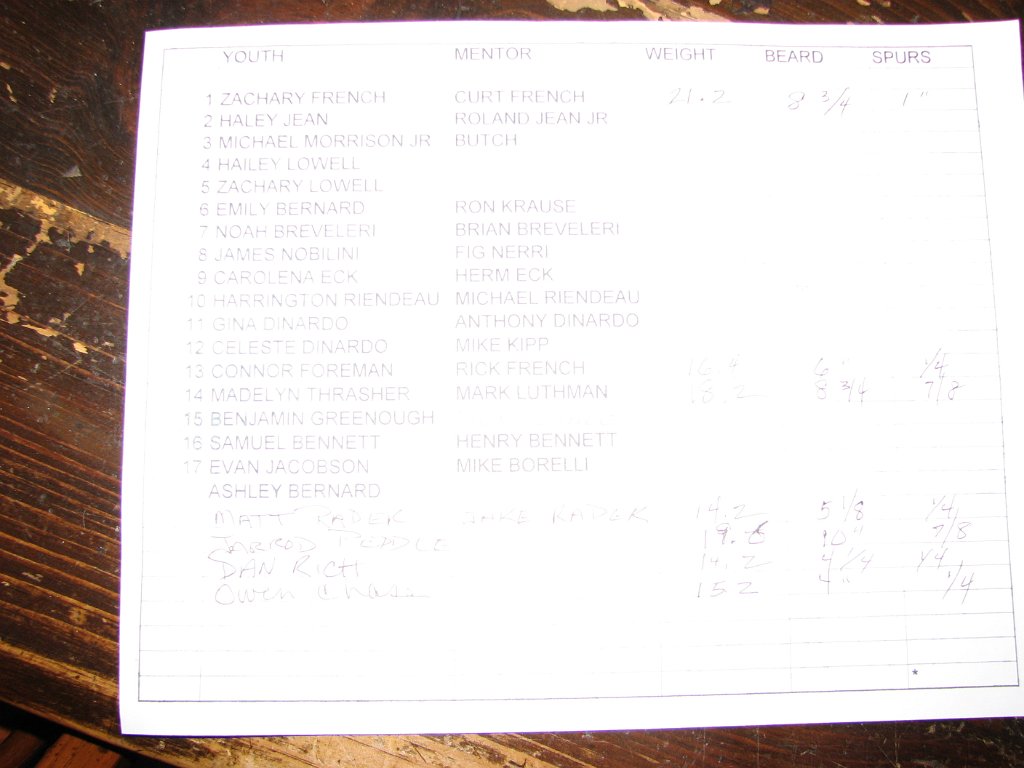 YOUTH MENTOR WEIGHT BEARD SPURS
1 ZACHARY FRENCH CURT FRENCH 21.2 8 3/4 1"
2 HALEY JEAN ROLAND JEAN JR
3 MICHAEL MORRISON JR BUTCH
4 HAILEY LOWELL
5 ZACHARY LOWELL
6 EMILY BERNARD RON KRAUSE
7 NOAH BREVELERI BRIAN BREVELERI
8 JAMES NOBILINI FIG NERRI
9 CAROLENA ECK HERM ECK
10 HARRINGTON RIENDEAU MICHAEL RIENDEAU
11 GINA DINARDO ANTHONY DINARDO
12 CELESTE DINARDO MIKE KIPP
13 CONNOR FOREMAN RICK FRENCH 16.4 6" 1/4
14 MADELYN THRASHER MARK LUTHMAN 18.2 8 3/4 7/8
15 BENJAMIN GREENOUGH
16 SAMUEL BENNETT HENRY BENNETT
17 EVAN JACOBSON MIKE BORELLI
ASHLEY BERNARD
MATT RADER JAKE RADER 14.2 5 1/8 1/4
JARROD PEDDLE 19.6 10" 7/8
DAN RICH 14.2 4 1/4 1/4
Owen Chase 15 2 4" 1/4
*